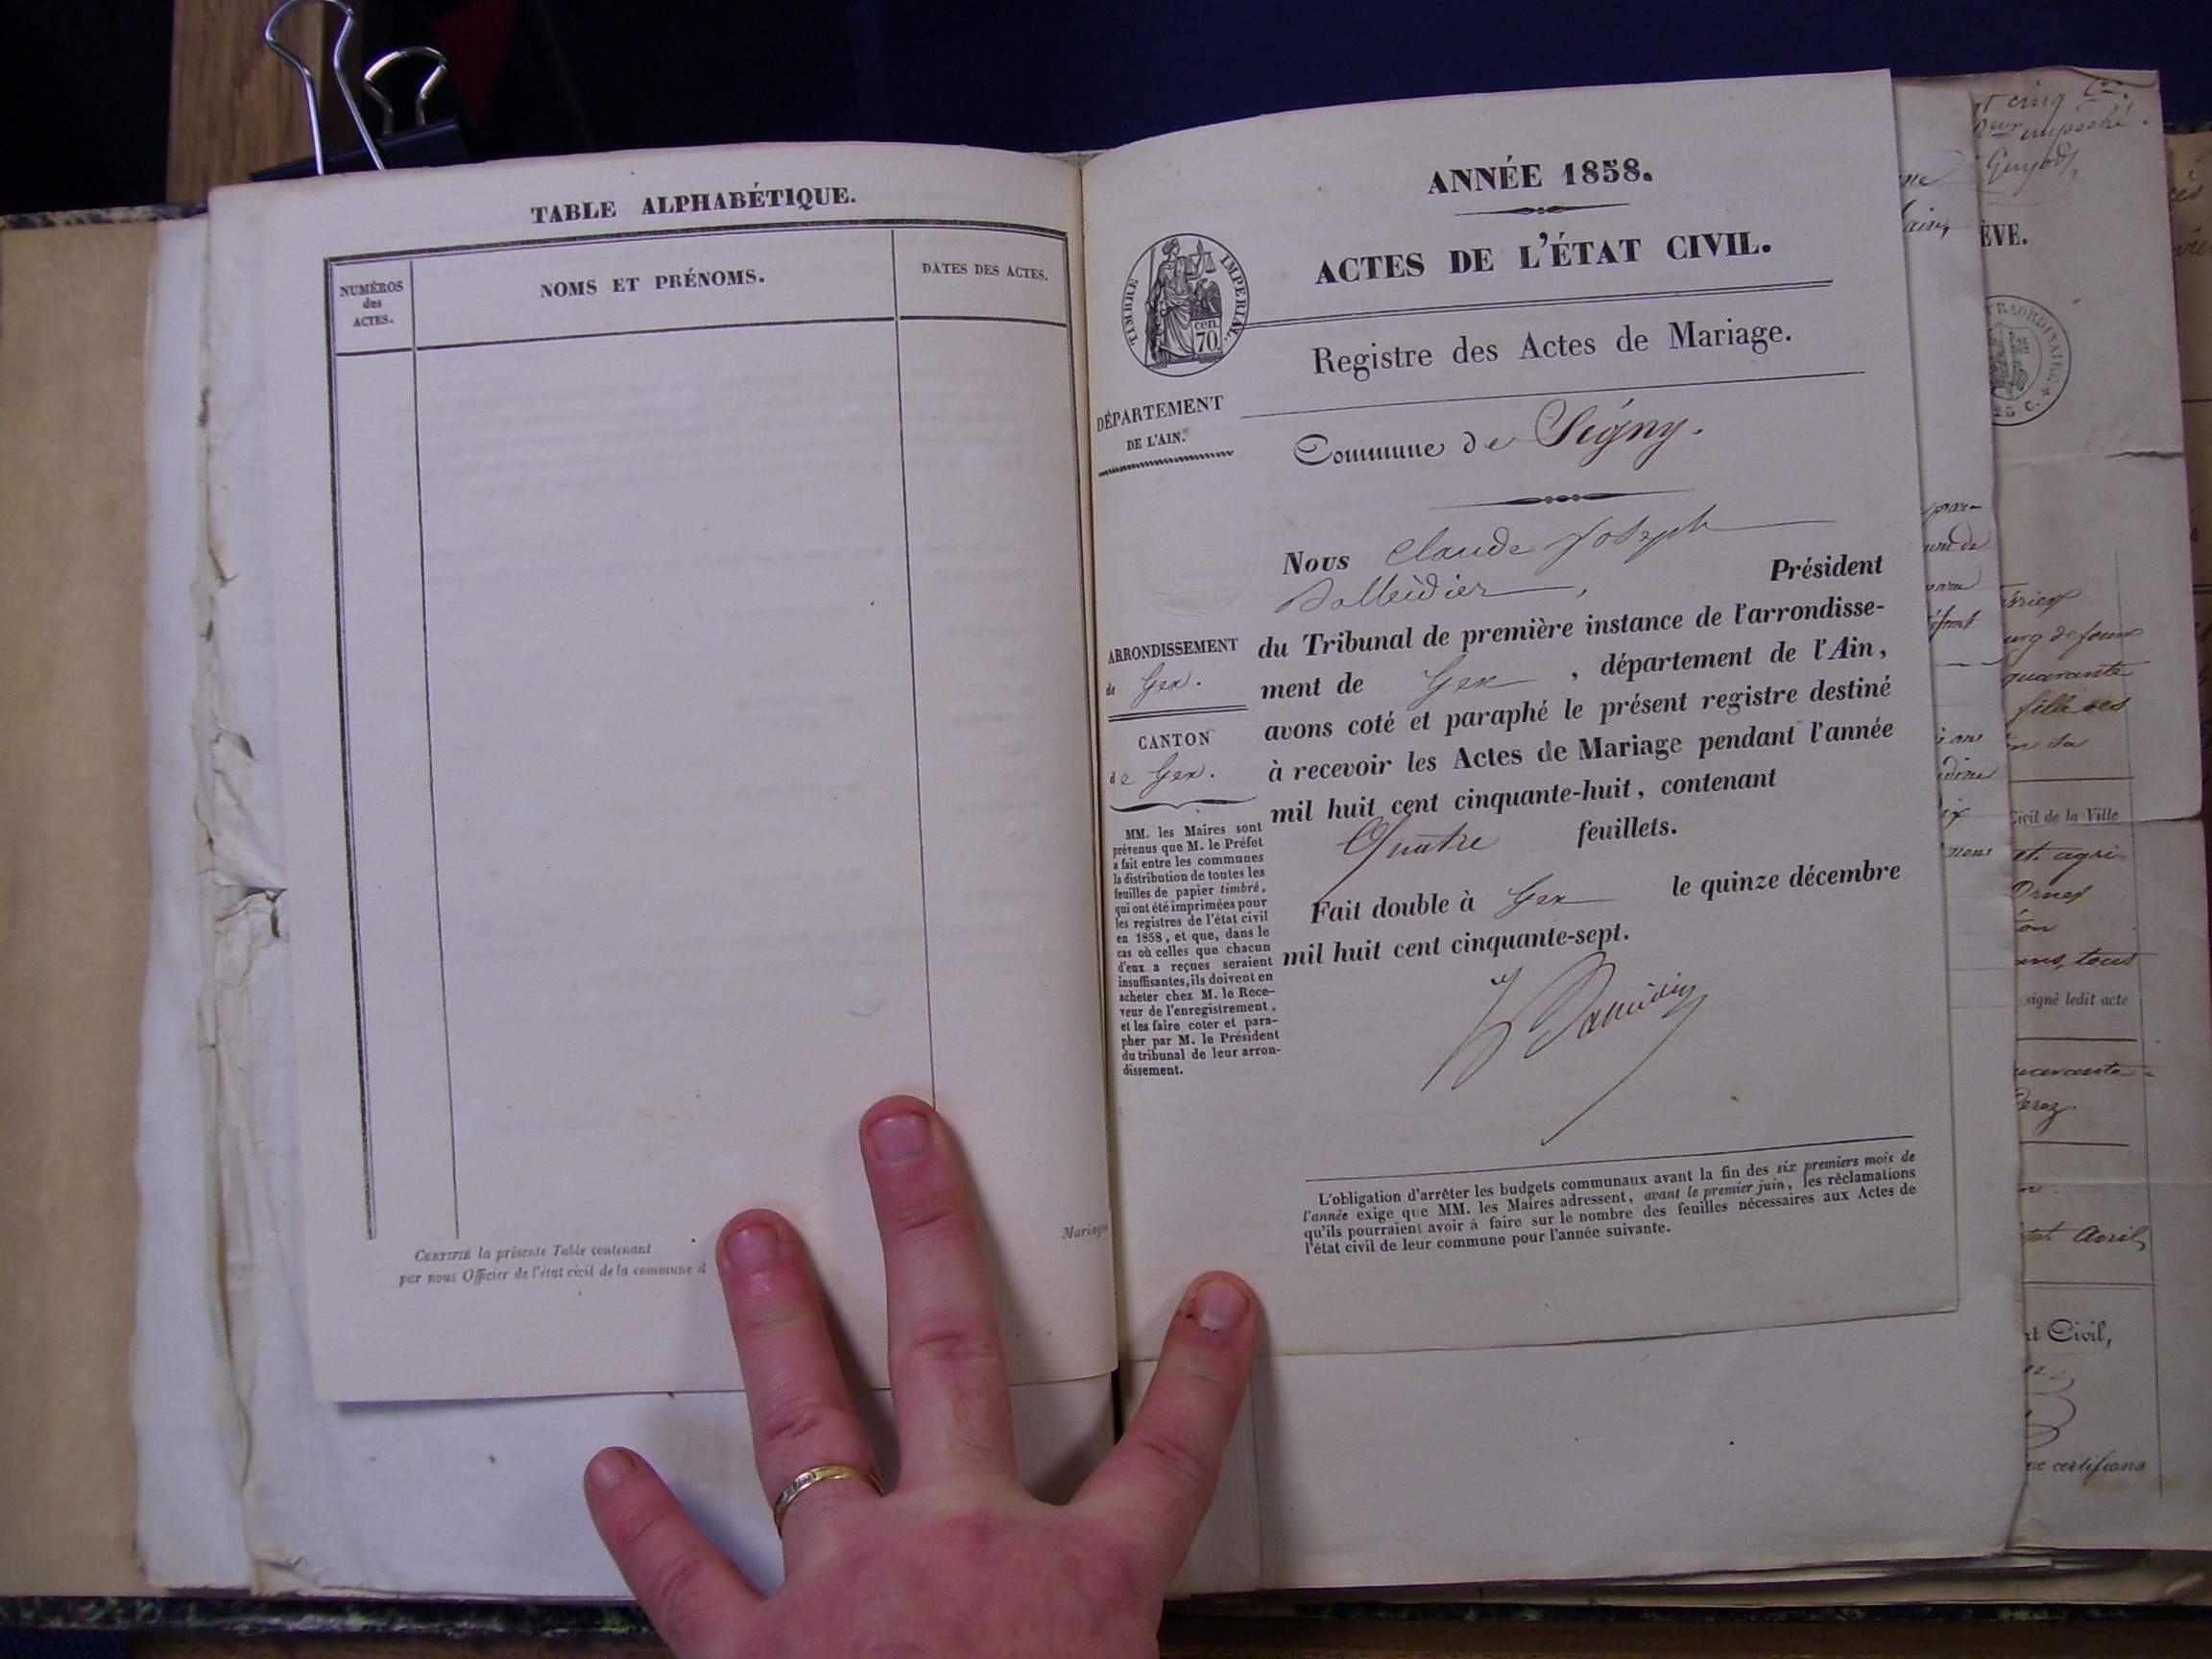 TABLE ALPHABÉTIQUE.
NUMÉROS
des
ACTES.
NOMS ET PRÉNOMS.
DATES DES ACTES.
CERTIFIÉ la présente Table contenant
par nous Officier de l'état civil de la commune d
Mariages
ANNÉE 1858.
ACTES DE L'ÉTAT CIVIL.
TIMBRE IMPERIAL.
cen.
70.
Registre des Actes de Mariage.
DÉPARTEMENT
DE L'AIN.
Commune de Ségny.
Nous Claude Joseph
Président
du Tribunal de première instance de l'arrondisse-
ment de Gex , département de l'Ain,
avons coté et paraphé le présent registre destiné
à recevoir les Actes de Mariage pendant l'année
mil huit cent cinquante-huit, contenant
Quatre feuillets.
Fait double à Gex le quinze décembre
mil huit cent cinquante-sept.
ARRONDISSEMENT
de Gex.
CANTON
de Gex.
MM. les Maires sont
prévenus que M. le Préfet
a fait entre les communes
la distribution de toutes les
feuilles de papier timbré,
qui ont été imprimées pour
les registres de l'état civil
en 1858, et que, dans le
cas où celles que chacun
d'eux a reçues seraient
insuffisantes, ils doivent en
acheter chez M. le Rece-
veur de l'enregistrement,
et les faire coter et para-
pher par M. le Président
du tribunal de leur arron-
dissement.
L'obligation d'arrêter les budgets communaux avant la fin des six premiers mois de
l'année exige que MM. les Maires adressent, avant le premier juin, les réclamations
qu'ils pourraient avoir à faire sur le nombre des feuilles nécessaires aux Actes de
l'état civil de leur commune pour l'année suivante.
cinq
empêché.
ÈVE.
TRAORDINAIRE
quarante
Civil de la Ville
et agri-
tous
signé ledit acte
Avril
Civil,
certifions